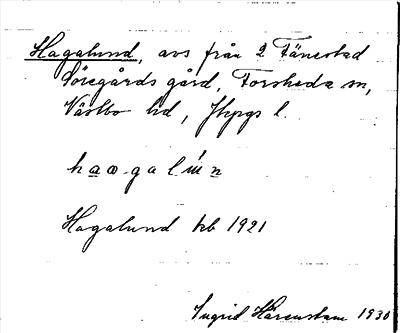 Hagalund, avs från 2 Tånestad
Sörgårds gård, Forsheda sn,
Västbo hd, Jkpgs l.
Hagalund kb 1921
Ingrid Hårenstam 1930